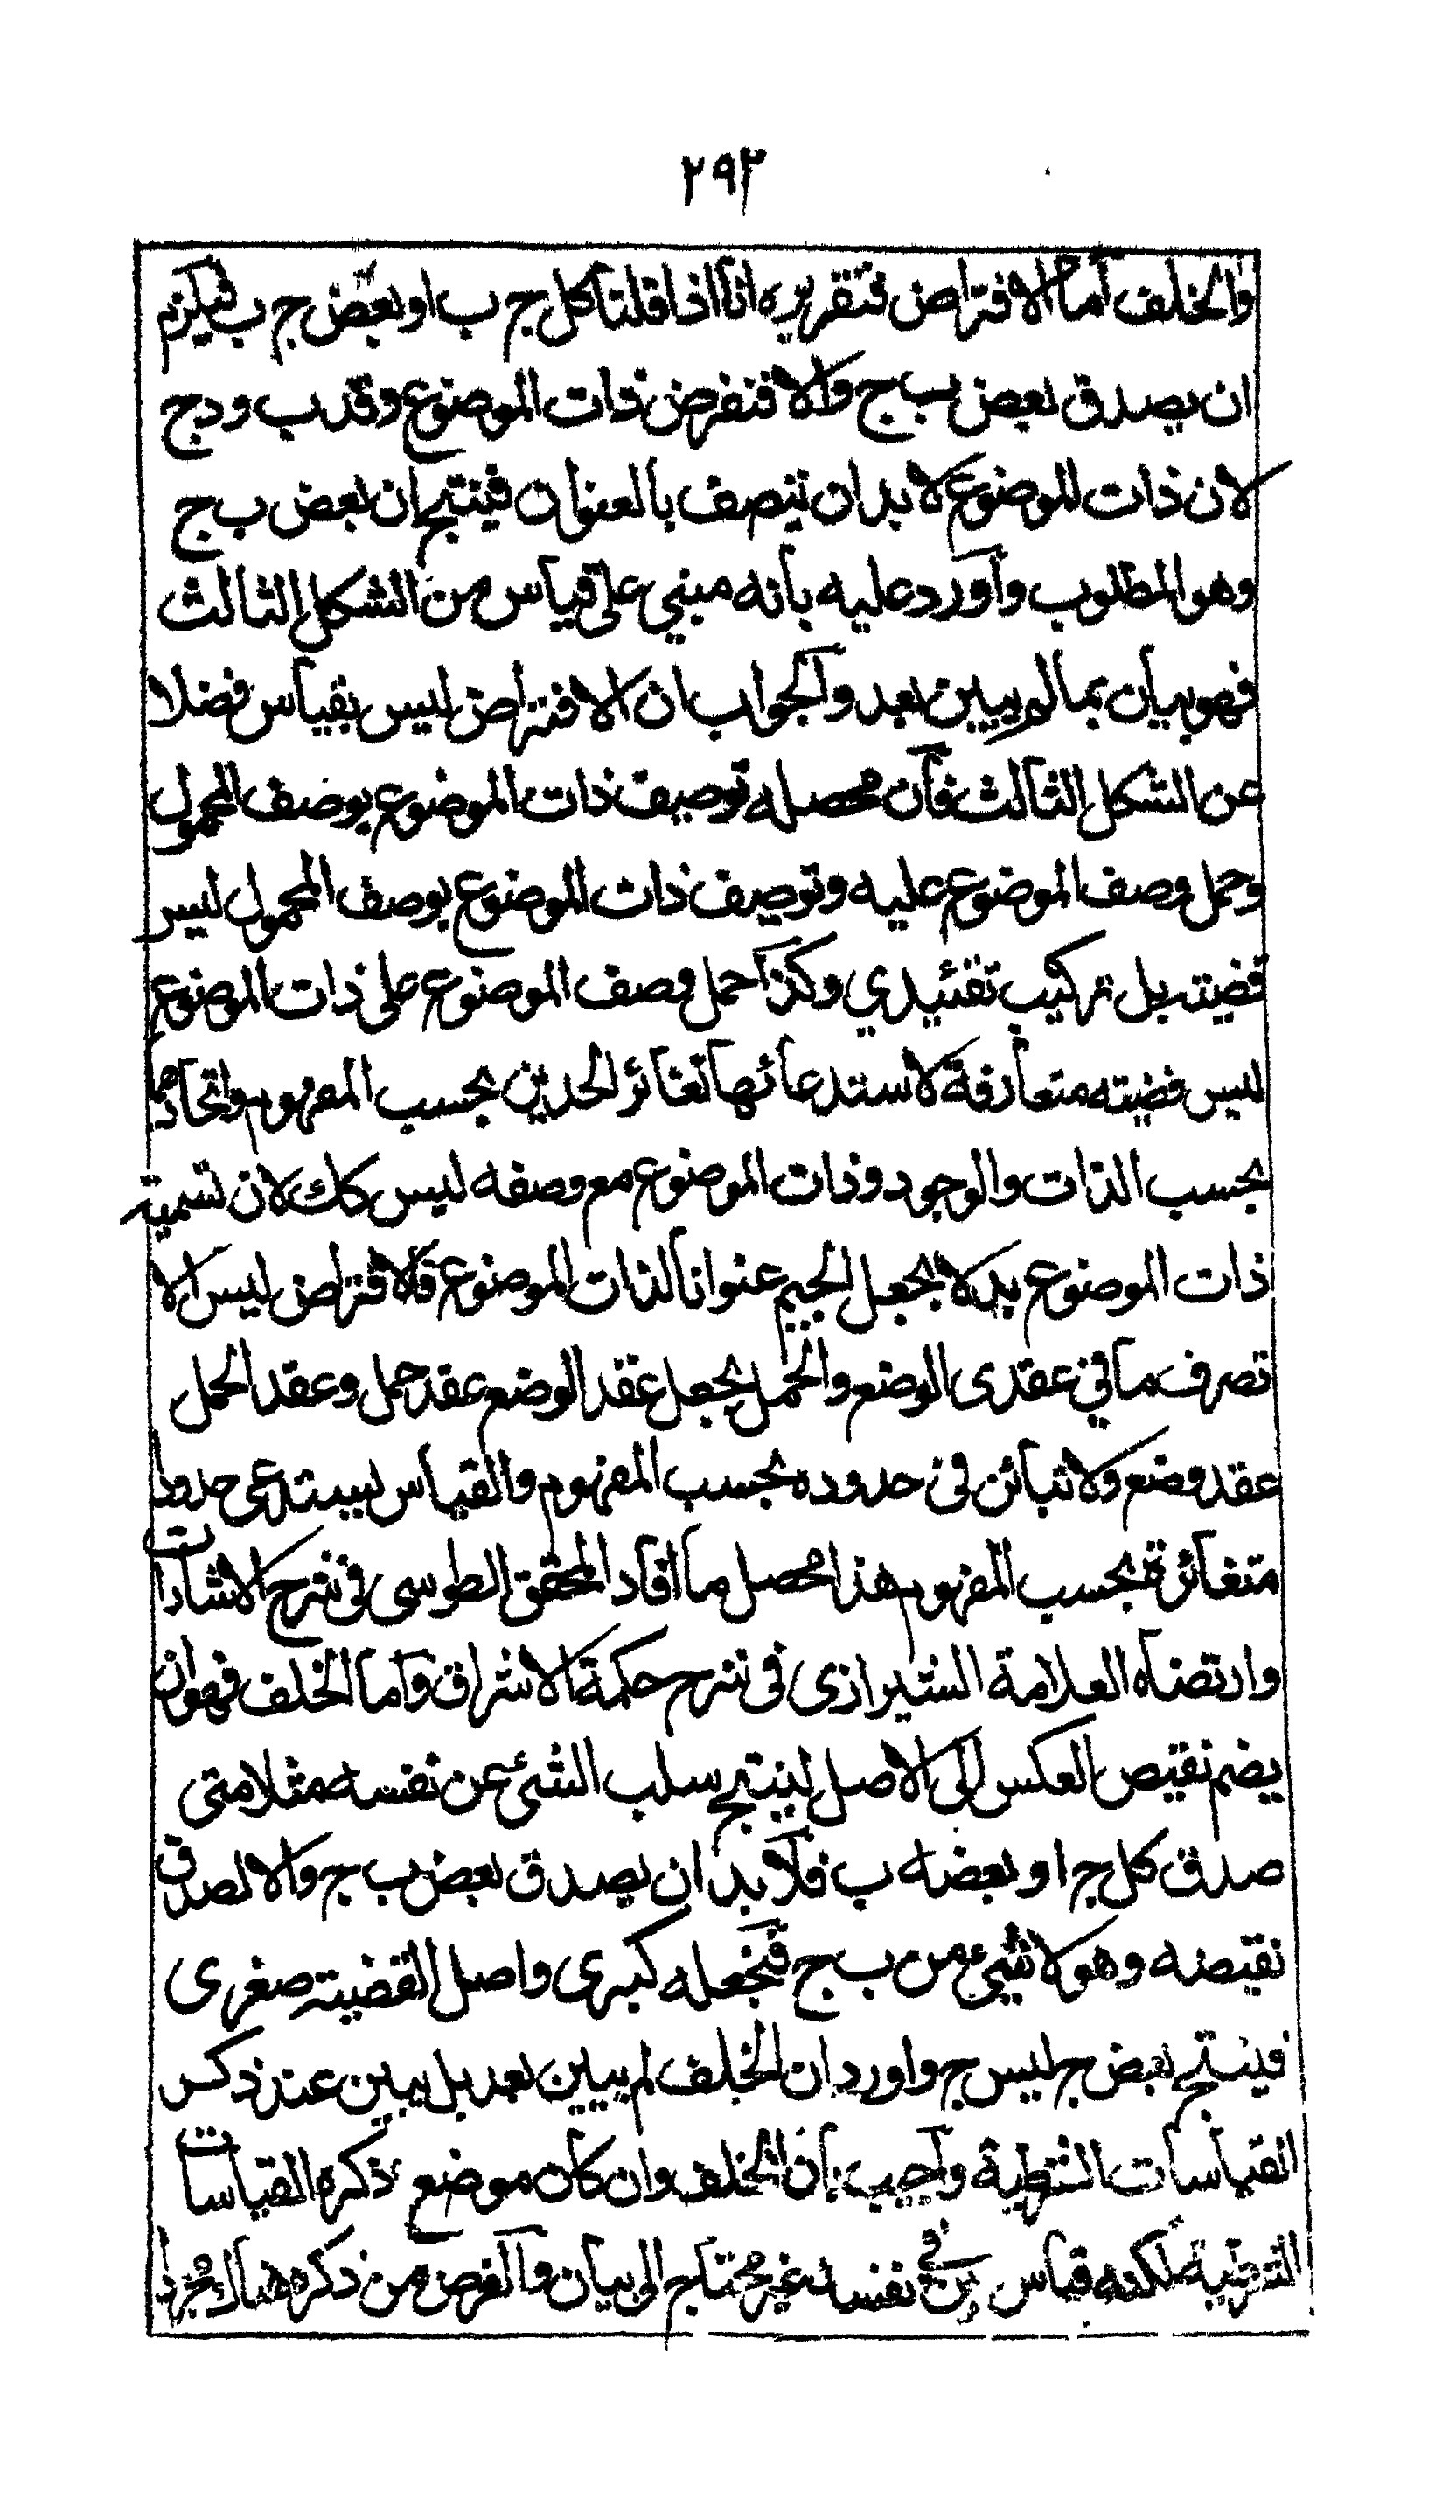 ٢٩٢
والخلف اما الافتراض فتقريره انا اذا قلنا كل ج ب او بعض ج ب فيلزم
ان يصدق بعض ب ج والا فنفرض ذات الموضوع د فد ب و د ج
لان ذات الموضوع لا بد ان يتصف بالعنوان فينتج ان بعض ب ج
وهو المطلوب واورد عليه بانه مبني على قياس من الشكل الثالث
فهو بيان بما لم يبين بعد والجواب ان الافتراض ليس بقياس فضلا
عن الشكل الثالث فان محصله توصيف ذات الموضوع بوصف المحمول
وحمل وصف الموضوع عليه وتوصيف ذات الموضوع بوصف المحمول ليس
قضية بل تركيب تقئيدي وكذا حمل وصف الموضوع على ذات الموضوع
ليس قضيته متعارفة لاستدعائها تغائر الحدين بحسب المفهوم واتحادهما
بحسب الذات والوجود وذات الموضوع مع وصفه ليس كك لان تسمية
ذات الموضوع بد لا يجعل الجيم عنوانا لذات الموضوع فالافتراض ليس الا
تصرف ما في عقدى الوضع والحمل بجعل عقد الوضع عقد حمل وعقد الحمل
عقد وضع ولا تبائن فى حدوده بحسب المفهوم والقياس يستدعى حدودا
متغائرة بحسب المفهوم هذا محصل ما افاد المحقق الطوسى فى شرح الاشارات
وارتضاه العلامة الشيرازى فى شرح حكمة الاشراق واما الخلف فهو ان
يضم نقيض العكس الى الاصل لينتج سلب الشئ عن نفسه مثلا متى
صدق كل ج او بعضه ب فلا بد ان يصدق بعض ب ج والا لصدق
نقيضه وهو لا شيئ من ب ج فنجعله كبرى واصل القضية صغرى
فينتج بعض ج ليس ج واورد ان الخلف لم يبين بعد بل يبين عند ذكر
القياسات الشرطية واجيب بان الخلف وان كان موضع ذكره القياسات
الشرطية لكنه قياس بين فى نفسه غير محتاج الى بيان والغرض من ذكره هناك مجرد